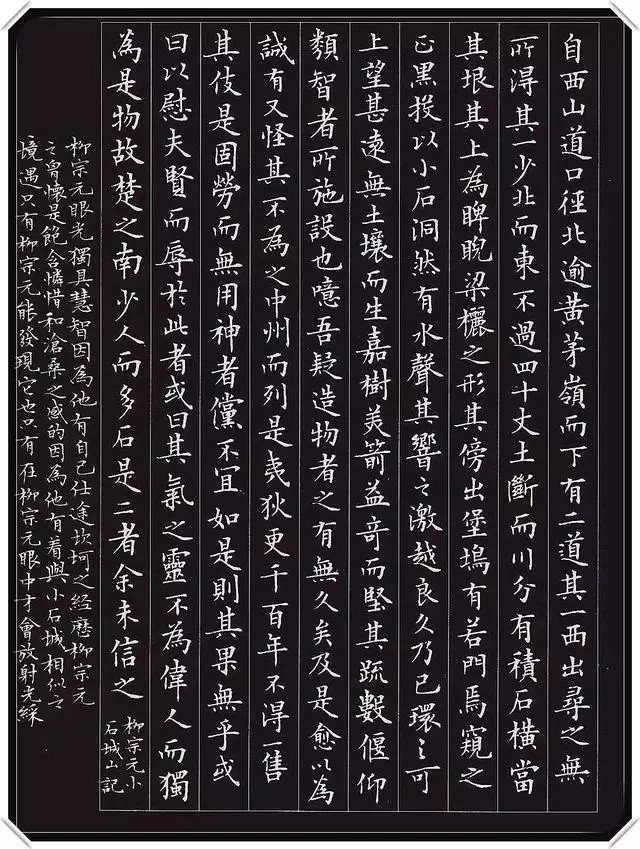 自西山道口徑北逾黄茅嶺而下有二道其一西出尋之無
所得其一少北而東不過四十丈土斷而川分有積石橫當
其垠其上為睥睨梁欐之形其傍出堡塢有若門焉窺之
正黑投以小石洞然有水聲其響之激越良久乃已環之可
上望甚遠無土壤而生嘉樹美箭益奇而堅其疏數偃仰
類智者所施設也噫吾疑造物者之有無久矣及是愈以為
誠有又怪其不為之中州而列是夷狄更千百年不得一售
其伎是固勞而無用神者儻不宜如是則其果無乎或
曰以慰夫賢而辱於此者或曰其氣之靈不為偉人而獨
為是物故楚之南少人而多石是二者余未信之
柳宗元小
石城山記
柳宗元眼光獨具慧智因為他有自己仕途坎坷之經歷柳宗元
之曾懷是飽含憐惜和滄桑之感的因為他有着與小石城相似之
境遇只有柳宗元能發現它也只有在柳宗元眼中才會放射光綵